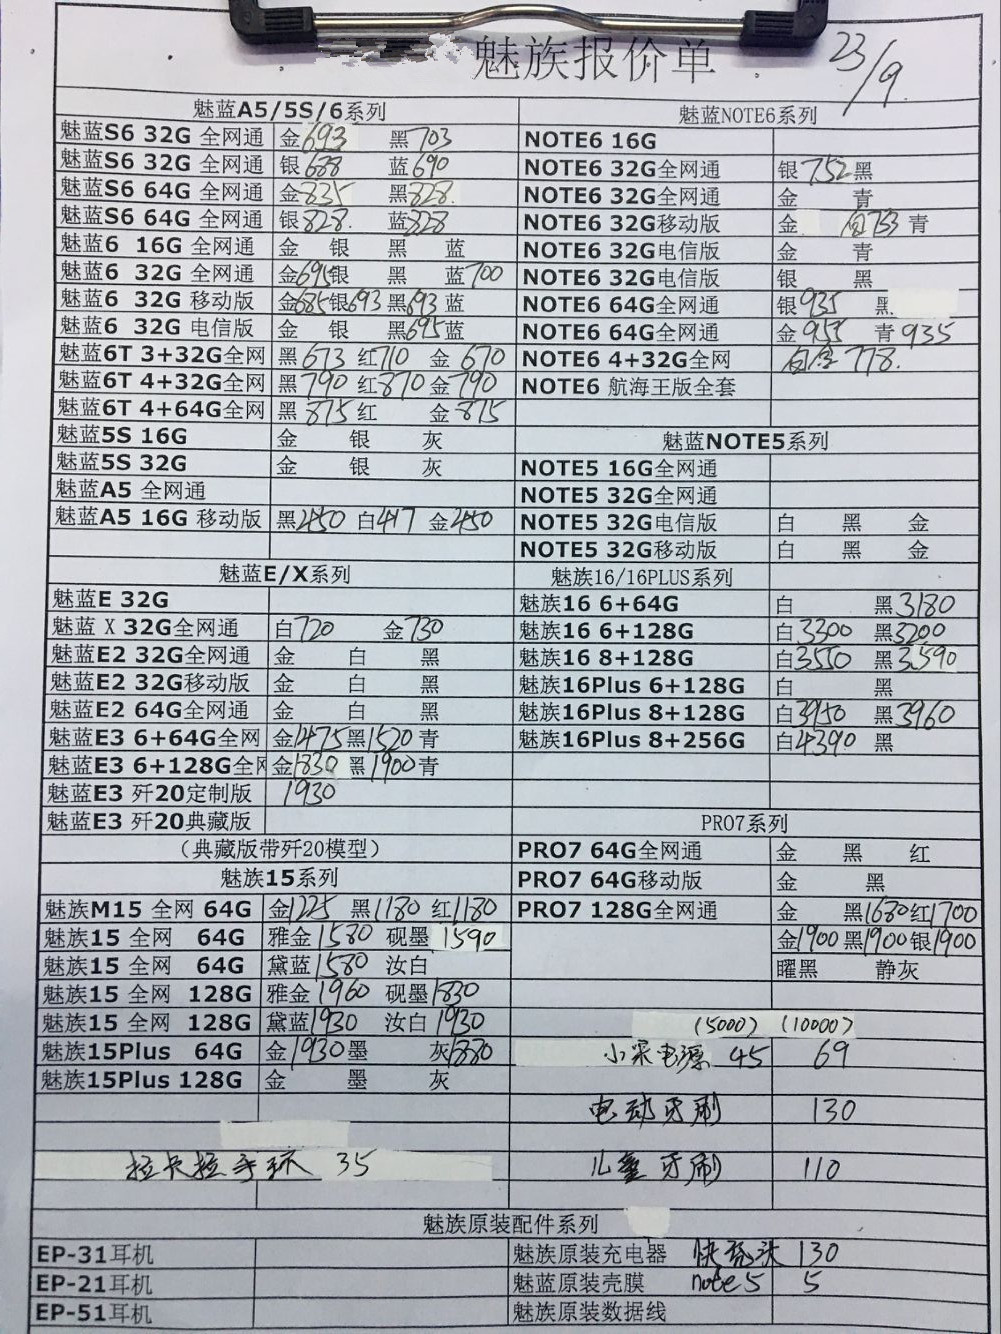 魅族报价单 23/9
魅蓝A5/5S/6系列
魅蓝S6 32G 全网通 金693 黑703
魅蓝S6 32G 全网通 银688 蓝690
魅蓝S6 64G 全网通 金835 黑828.
魅蓝S6 64G 全网通 银828. 蓝828
魅蓝6 16G 全网通 金 银 黑 蓝
魅蓝6 32G 全网通 金695银 黑 蓝700
魅蓝6 32G 移动版 金685银693 黑693 蓝
魅蓝6 32G 电信版 金 银 黑695蓝
魅蓝6T 3+32G全网 黑673 红710 金670
魅蓝6T 4+32G全网 黑790 红870 金790
魅蓝6T 4+64G全网 黑875 红 金875
魅蓝5S 16G 金 银 灰
魅蓝5S 32G 金 银 灰
魅蓝A5 全网通
魅蓝A5 16G 移动版 黑450 白417 金450
魅蓝E/X系列
魅蓝E 32G
魅蓝 X 32G全网通 白720 金730
魅蓝E2 32G全网通 金 白 黑
魅蓝E2 32G移动版 金 白 黑
魅蓝E2 64G全网通 金 白 黑
魅蓝E3 6+64G全网 金1475黑1520 青
魅蓝E3 6+128G全 金1830 黑1900青
魅蓝E3 歼20定制版 1930
魅蓝E3 歼20典藏版
（典藏版带歼20模型）
魅族15系列
魅族M15 全网 64G 金1225 黑1180 红1180
魅族15 全网 64G 雅金1580 砚墨1590
魅族15 全网 64G 黛蓝1580 汝白
魅族15 全网 128G 雅金1960 砚墨1830
魅族15 全网 128G 黛蓝1930 汝白1930
魅族15Plus 64G 金1930墨 灰1880
魅族15Plus 128G 金 墨 灰
拉卡拉手环 35
魅蓝NOTE6系列
NOTE6 16G
NOTE6 32G全网通 银752黑
NOTE6 32G全网通 金 青
NOTE6 32G移动版 金 733 青
NOTE6 32G电信版 金 青
NOTE6 32G电信版 银 黑
NOTE6 64G全网通 银935 黑
NOTE6 64G全网通 金955 青935
NOTE6 4+32G全网 778.
NOTE6 航海王版全套
魅蓝NOTE5系列
NOTE5 16G全网通
NOTE5 32G全网通
NOTE5 32G电信版 白 黑 金
NOTE5 32G移动版 白 黑 金
魅族16/16PLUS系列
魅族16 6+64G 白 黑3180
魅族16 6+128G 白3300 黑3200
魅族16 8+128G 白3550 黑3590
魅族16Plus 6+128G 白 黑
魅族16Plus 8+128G 白3950 黑3960
魅族16Plus 8+256G 白4390 黑
PRO7系列
PRO7 64G全网通 金 黑 红
PRO7 64G移动版 金 黑
PRO7 128G全网通 金 黑1680红1700
金1900黑1900银1900
曜黑 静灰
(5000) (10000)
小米电源 45 69
电动牙刷 130
儿童牙刷 110
魅族原装配件系列
EP-31耳机 魅族原装充电器 快充头 130
EP-21耳机 魅蓝原装壳膜 note5 5
EP-51耳机 魅族原装数据线